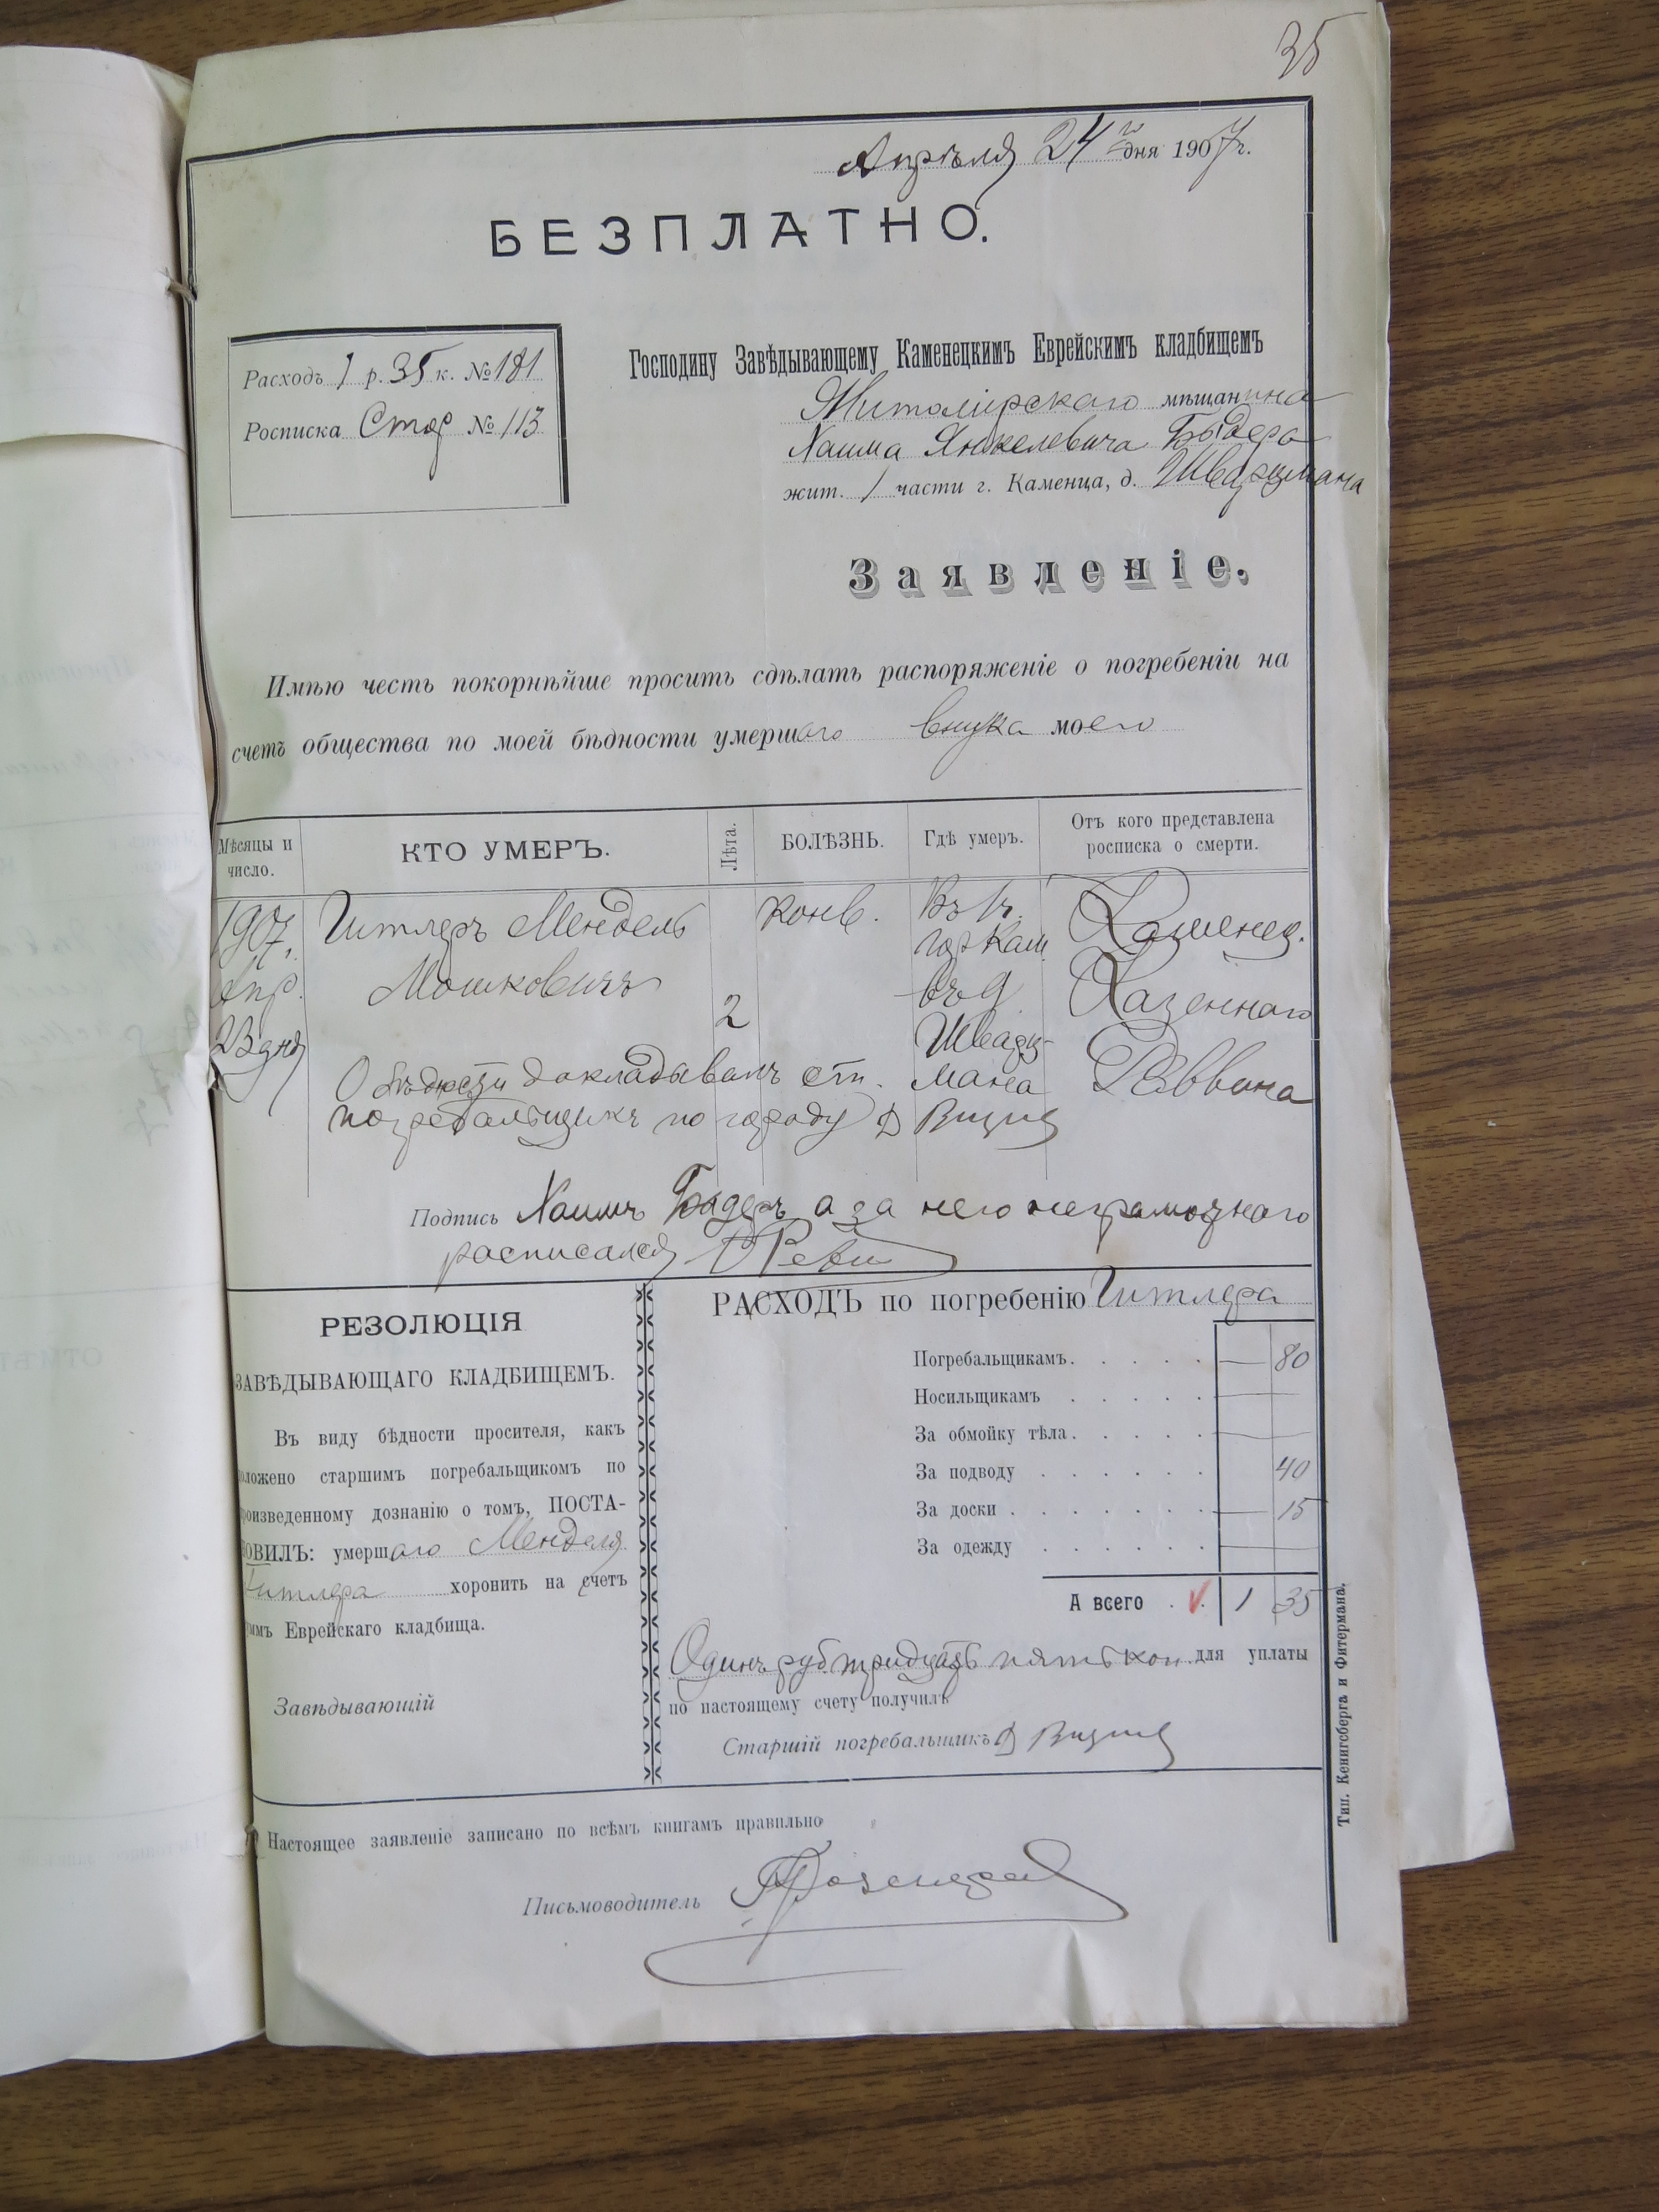 35
Апрѣля 24 го дня 1907 г.
БЕЗПЛАТНО.
Расходъ 1 р. 35 к. № 181
Росписка Стор № 113
Господину Завѣдывающему Каменецкимъ Еврейскимъ кладбищемъ
Житомірскаго мѣщанина
Хаима Янкелевича
жит. 1 части г. Каменца, д. Шварцмана
Заявленіе.
Имѣю честь покорнѣйше просить сдѣлать распоряженіе о погребеніи на
счетъ общества по моей бѣдности умершаго внука моего
Мѣсяцы и число.
КТО УМЕРЪ.
Лѣта.
БОЛѢЗНЬ.
Гдѣ умеръ.
Отъ кого представлена росписка о смерти.
1907.
Апр.
23 дня
Гитлеръ Мендель
Мошковичъ
2
конв.
Въ 1 ч.
гор Кам
въ д
Шварц-
мана
Каменец.
Казеннаго
Раввина
О бѣдности докладывалъ ст.
погребальщикъ по городу
Подпись Хаимъ а за него неграмотнаго
расписался
РЕЗОЛЮЦІЯ
ЗАВѢДЫВАЮЩАГО КЛАДБИЩЕМЪ.
Въ виду бѣдности просителя, какъ
оложено старшимъ погребальщикомъ по
роизведенному дознанію о томъ, ПОСТА-
ОВИЛЪ: умершаго Менделя
Гитлера хоронить на счетъ
уммъ Еврейскаго кладбища.
Завѣдывающій
РАСХОДЪ по погребенію Гитлера
Погребальщикамъ. — 80
Носильщикамъ —
За обмойку тѣла. —
За подводу 40
За доски — 15
За одежду —
А всего 1 35
Одинъ руб тридцать пять коп. для уплаты
по настоящему счету получилъ
Старшій погребальщикъ
Тип. Кенигсберга и Фитермана.
Настоящее заявленіе записано по всѣмъ книгамъ правильно
Письмоводитель